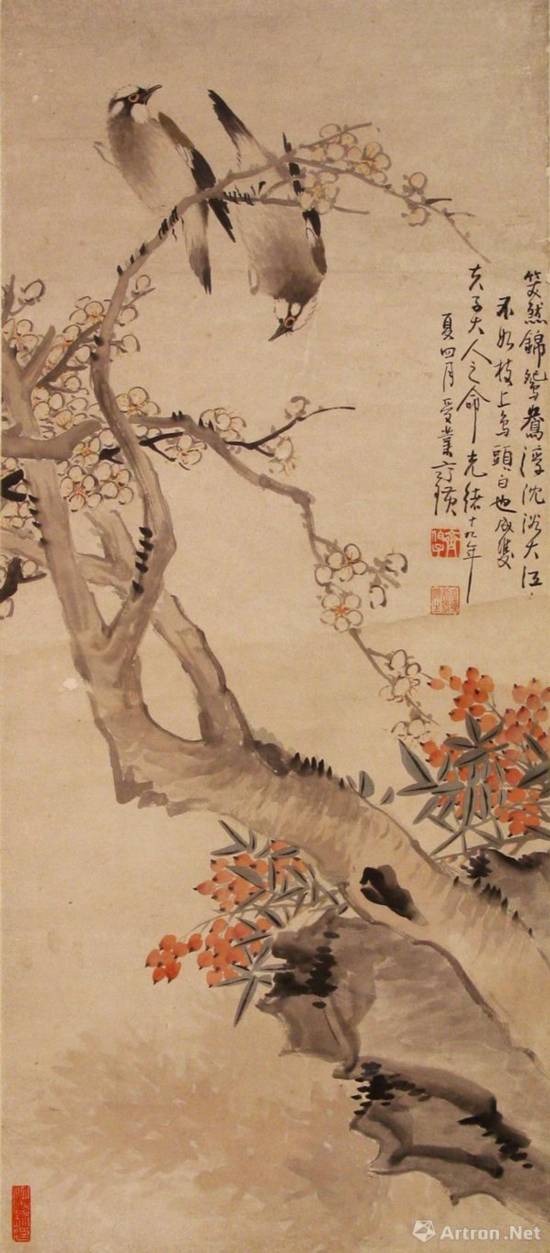 笑然錦鴛鴦浮沈浴大江
不如枝上鳥頭白也成雙
夫子大人之命光緒十九年
夏四月受業齊璜
Artron.Net